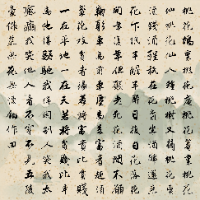 桃花塢裏桃花庵桃花庵裏桃花
仙桃花仙人種桃樹又摘桃花換
酒錢酒醒只在花前坐酒醉還來
花下眠半醒半醉日復日花落花
開年復年但願老死花酒間不願
鞠躬車馬前車塵馬足富者趣酒
盞花枝貧者緣若將富貴比貧賤
一在平地一在天若將貧賤比車
馬他得驅馳我得閑別人笑我忒
瘋癲我笑他人看不穿不見五陵
豪傑墓無花無酒鋤作田